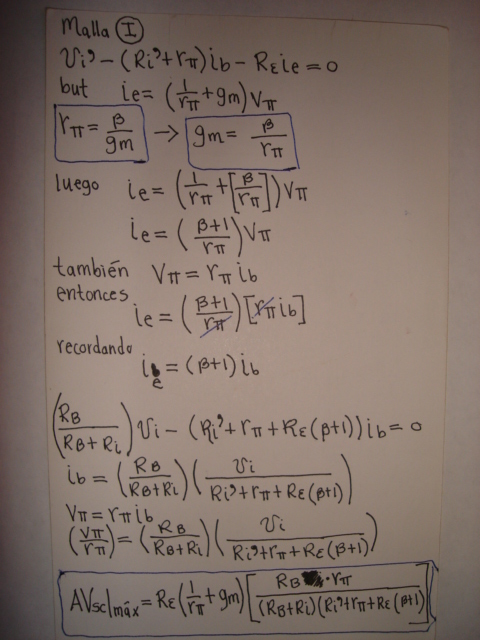 Malla I
Vi' - (Ri' + rπ) ib - RE ie = 0
but ie = (1/rπ + gm) Vπ
rπ = β/gm → gm = β/rπ
luego ie = (1/rπ + [β/rπ]) Vπ
ie = (β+1/rπ) Vπ
también Vπ = rπ ib
entonces
ie = (β+1/rπ) [rπ ib]
recordando
ie = (β+1) ib
(RB/RB+Ri) Vi - (Ri' + rπ + RE(β+1)) ib = 0
ib = (RB/RB+Ri) (Vi/Ri'+rπ+RE(β+1))
Vπ = rπ ib
(Vπ/rπ) = (RB/RB+Ri) (Vi/Ri'+rπ+RE(β+1))
AVsc|máx = RE (1/rπ + gm) [RB·rπ/(RB+Ri)(Ri'+rπ+RE(β+1)]